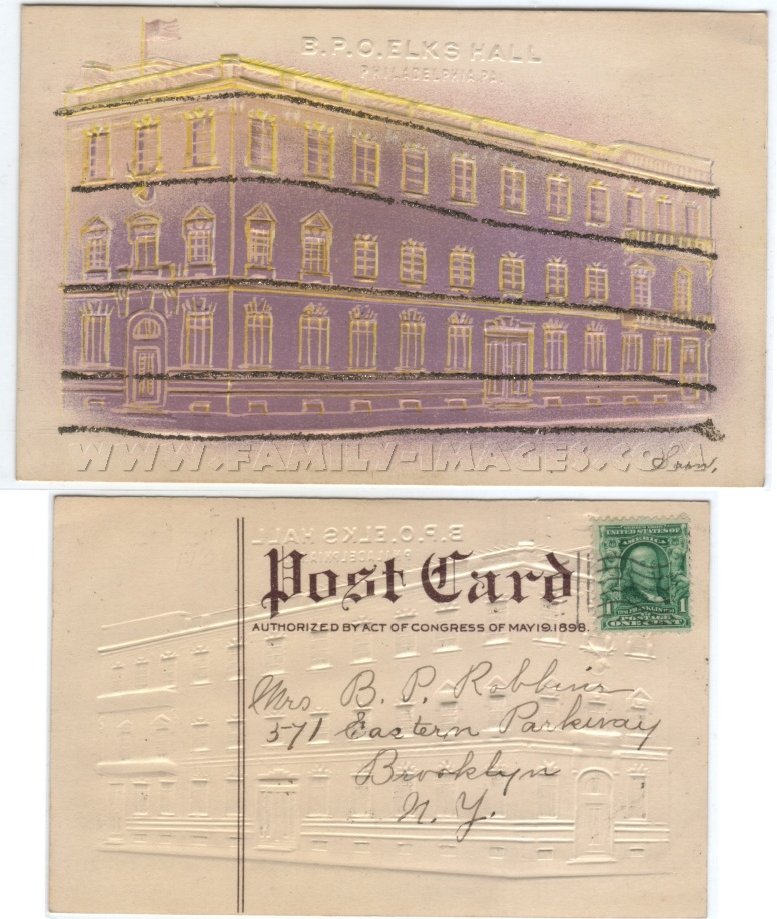 B.P.O. ELKS HALL
PHILADELPHIA PA.
WWW.FAMILY-IMAGES.COM
B.P.O. ELKS HALL
PHILADELPHIA
Post Card
AUTHORIZED BY ACT OF CONGRESS OF MAY 19. 1898.
UNITED STATES OF
AMERICA
1 FRANKLIN 1
POSTAGE
ONE CENT
Mrs B. P. Robbins
571 Eastern Parkway
Brooklyn
N. Y.